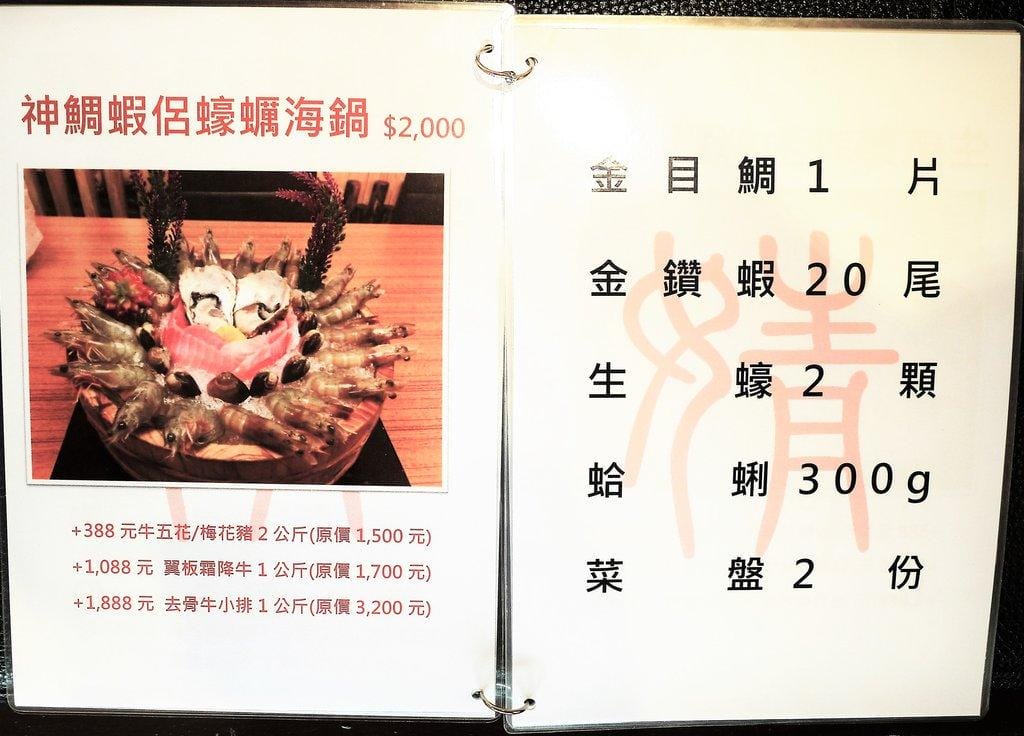 神鯛蝦侶蠔蠣海鍋 $2,000
+388 元牛五花/梅花豬 2 公斤(原價 1,500 元)
+1,088 元 翼板霜降牛 1 公斤(原價 1,700 元)
+1,888 元 去骨牛小排 1 公斤(原價 3,200 元)
金目鯛 1 片
金鑽蝦 20 尾
生蠔 2 顆
蛤蜊 300g
菜盤 2 份